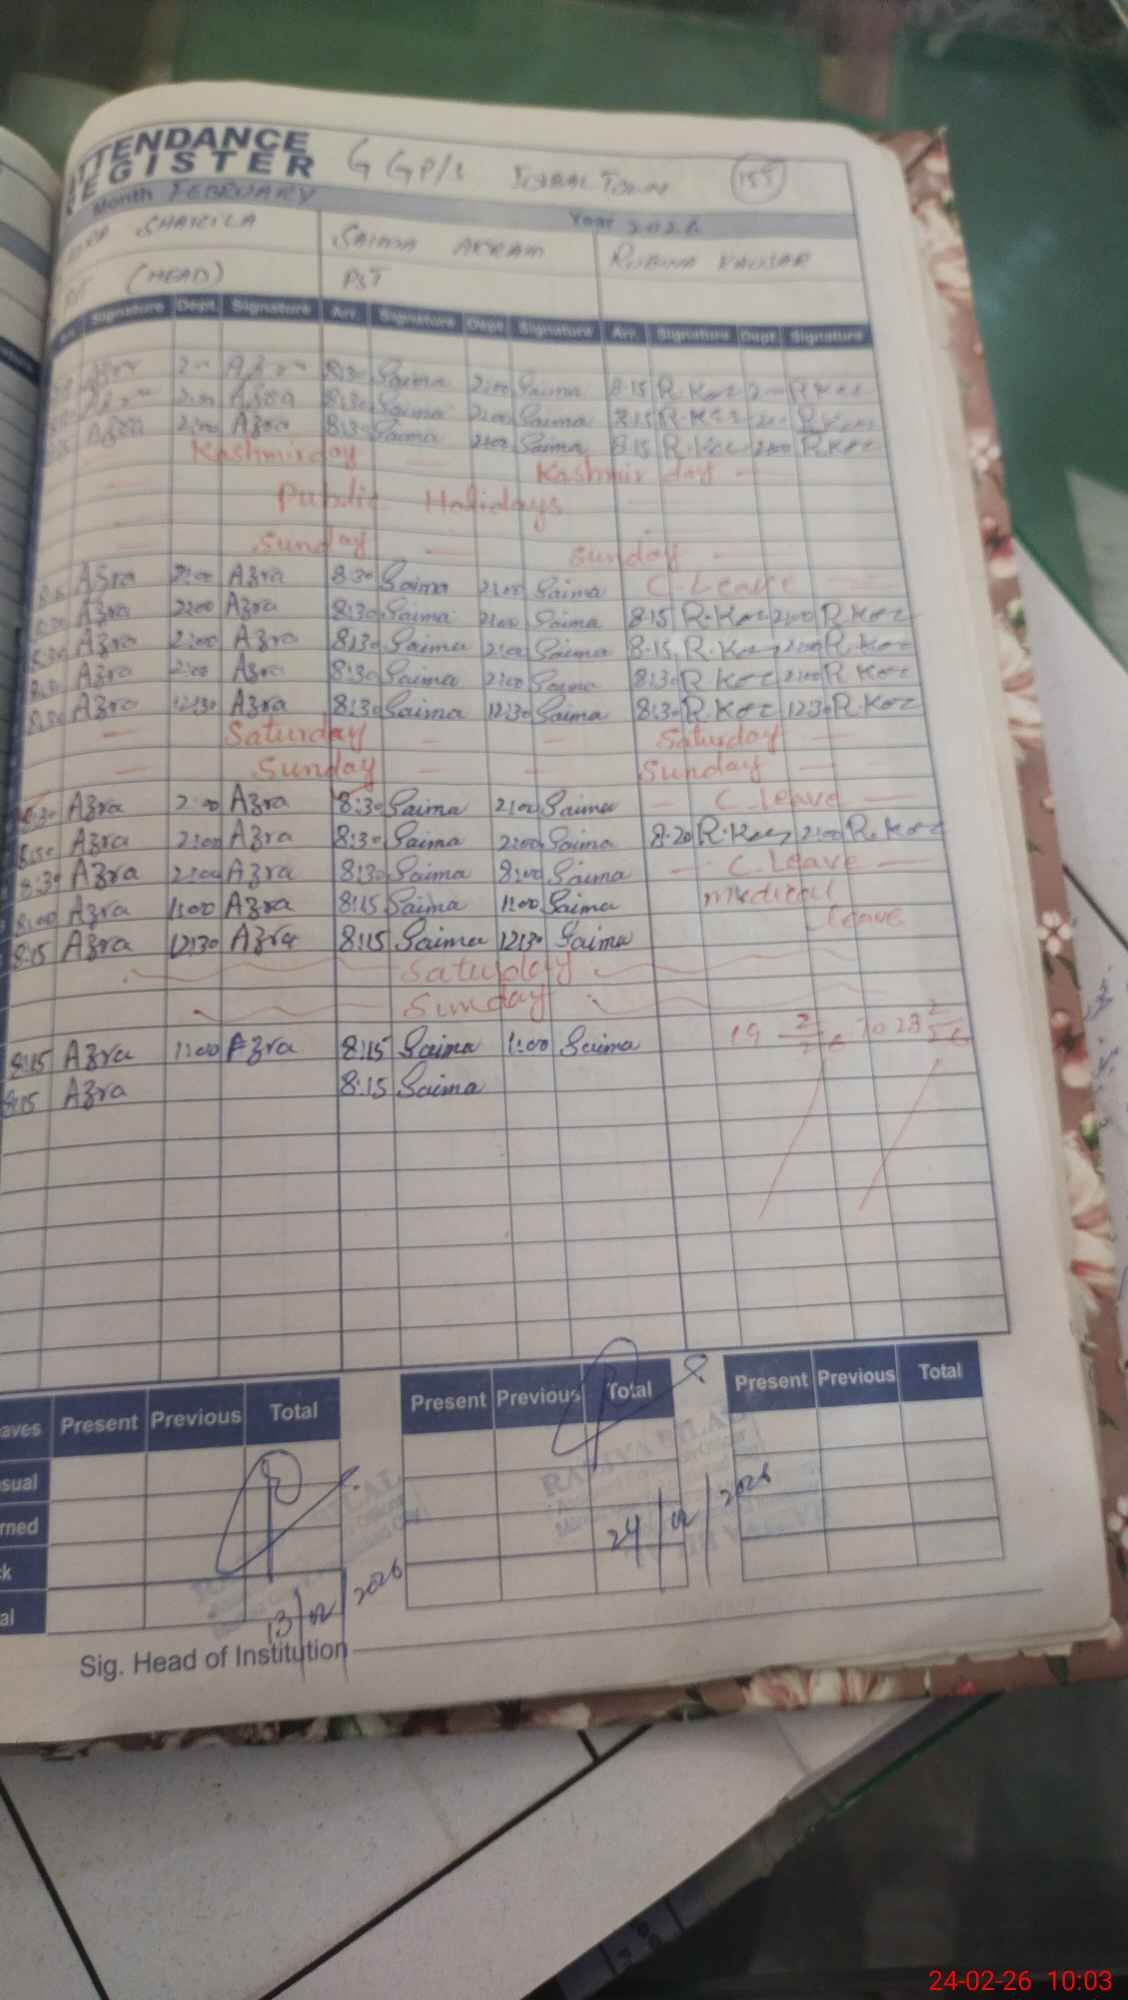 ATTENDANCE
REGISTER G GP/S IQBAL TOWN 155
Month FEBRUARY Year 2026
SHAKILA SAIMA AKRAM RUBINA KAUSAR
(HEAD) PST
Signature Dept. Signature Arr. Signature Dept. Signature Arr. Signature Dept. Signature
Azra 8:30 Saima 2:00 Saima 8:15 R.Koz R.Koz
2:00 Azra 8:30 Saima 2:00 Saima 8:15 R.Koz
Azra 2:00 Azra 8:30 Saima 2:00 Saima 8:15 R.Koz 2:00 R.Koz
Kashmir day — Kashmir day —
Public Holidays
— Sunday — Sunday —
Azra 2:00 Azra 8:30 Saima 2:00 Saima C.Leave
Azra 2:00 Azra 8:30 Saima 2:00 Saima 8:15 R.Koz 2:00 R.Koz
8:30 Azra 2:00 Azra 8:30 Saima 2:00 Saima 8:15 R.Koz 2:00 R.Koz
Azra 2:00 Azra 8:30 Saima 2:00 Saima 8:30 R.Koz 2:00 R.Koz
8:30 Azra 12:30 Azra 8:30 Saima 12:30 Saima 8:30 R.Koz 12:30 R.Koz
— Saturday — — Saturday —
— Sunday — — Sunday —
8:30 Azra 2:00 Azra 8:30 Saima 2:00 Saima — C.leave —
8:30 Azra 2:00 Azra 8:30 Saima 2:00 Saima 8:20 R.Koz 2:00 R.Koz
8:30 Azra 2:00 Azra 8:30 Saima 8:00 Saima — C.Leave —
8:00 Azra 1:00 Azra 8:15 Saima 1:00 Saima medical
leave
8:15 Azra 12:30 Azra 8:15 Saima 12:30 Saima
Saturday
Sunday
8:15 Azra 1:00 Azra 8:15 Saima 1:00 Saima 19 2/26 To 28 2/26
8:15 Azra 8:15 Saima
Present Previous Total Present Previous Total Present Previous Total
13/02/2026
24/02/2026
Sig. Head of Institution
24-02-26 10:03